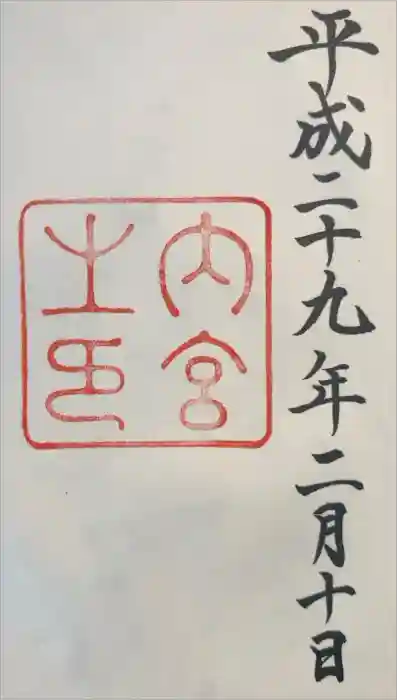 平成二十九年二月十日
内宮
之印